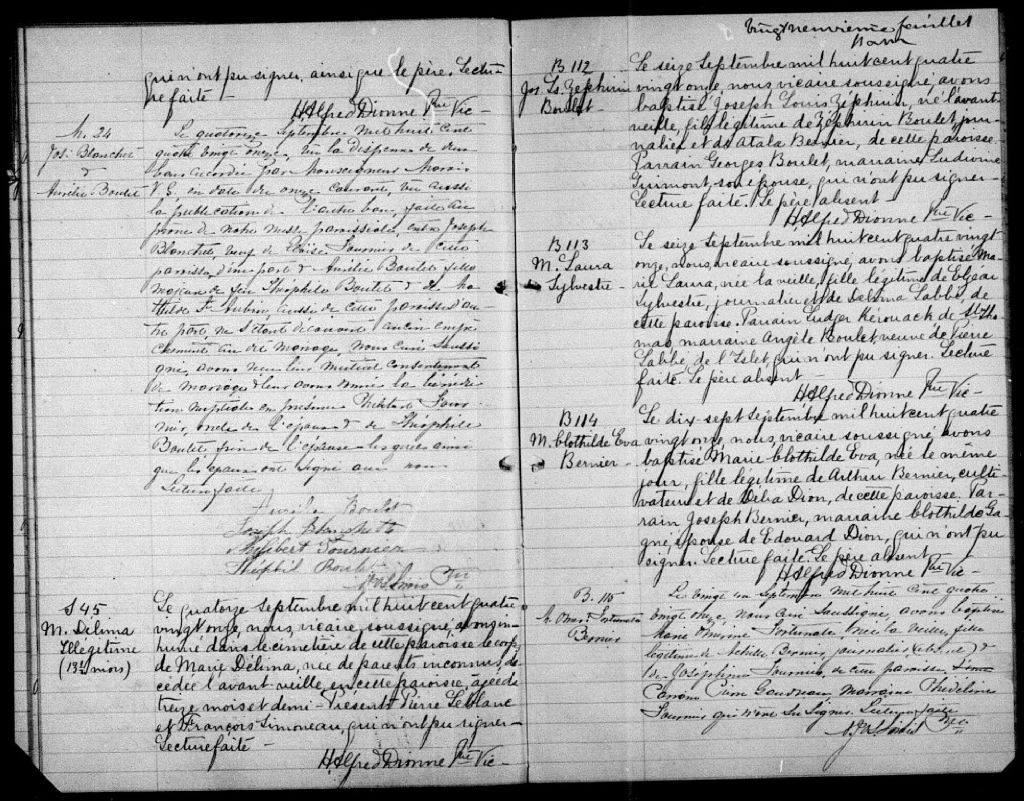 qui n'ont pu signer, ainsi que le père. Lectu-
re faite -
H. Alfred Dionne Ptre Vic -
M. 24
Jos. Blanchet
&
Aurélie Boulet
Le quatorze Septembre mil huit cent
quatre vingt onze, vu la dispense de deux
bans accordée par Monseigneur Marois
V. G. en date du onze courant, vu aussi
la publication de l'autre ban, faite au
prone de notre messe paroissiale entre Joseph
Blanchet veuf de Fournier de cette
paroisse, d'une part & Aurélie Boulet fille
majeure de feu Théophile Boulet & de Ma
thilde St Aubin, aussi de cette paroisse d'au
tre part, ne s'étant découvert aucun empê
chement au dit mariage, Nous curé soussi
gné, avons reçu leur mutuel consentement
de mariage & leur avons donné la bénédic
tion nuptiale en présence Four
nier, oncle de l'époux & de Théophile
Boulet frère de l'épouse lesquels ainsi
que les époux ont signé avec nous
Lecture faite
Aurélie Boulet
Joseph Blanchette
Fournier
Boulet
Ptre
S 45
M. Délima
Illégitime
(13½ mois)
Le quatorze septembre mil huit cent quatre
vingt onze, nous, vicaire, soussigné, avons in-
humé dans le cimetière de cette paroisse le corps
de Marie Délima, née de parents inconnus, dé
cédée l'avant veille, en cette paroisse, âgée de
treize mois et demi - Présents Pierre Leblanc
et François Simoneau, qui n'ont pu signer -
Lecture faite -
H. Alfred Dionne Ptre Vic -
Vingt neuvième feuillet
B 112
Jos. Ls. Zéphirin
Boulet -
Le seize Septembre mil huit cent quatre
vingt onze, nous, vicaire soussigné, avons
baptisé Joseph Louis Zéphirin, né l'avant
veille, fils légitime de Zéphirin Boulet, jour-
nalier et de Atala Bernier, de cette paroisse.
Parrain Georges Boulet, marraine Ludivine
Guimont, son épouse, qui n'ont pu signer -
Lecture faite. Le père absent
H. Alfred Dionne Ptre Vic -
B 113
M. Laura
Sylvestre -
Le seize Septembre mil huit cent quatre vingt
onze, nous, vicaire soussigné, avons baptisé Ma-
rie Laura, née la veille, fille légitime de Elzéar
Sylvestre, journalier et de Délima Labbé, de
cette paroisse. Parrain Ludger Kérouack de St Tho
mas, marraine Angèle Boulet, veuve de Pierre
Labbé de l'Islet, qui n'ont pu signer. Lecture
faite. Le père absent -
H. Alfred Dionne Ptre Vic -
B 114
M. Clothilde Eva
Bernier -
Le dix-sept septembre mil huit cent quatre
vingt onze, nous, vicaire soussigné, avons
baptisé Marie Clothilde Eva, née le même
jour, fille légitime de Arthur Bernier, culti-
vateur et de Délia Dion, de cette paroisse. Par-
rain Joseph Bernier, marraine Clothilde Ga
gné, épouse de Edouard Dion, qui n'ont pu
signer. Lecture faite. Le père absent
H. Alfred Dionne Ptre Vic -
B. 115
Fortunata
Bernier
Le vingt un Septembre mil huit cent quatre
vingt onze, nous curé soussigné, avons baptisé
Fortunata née la veille, fille
légitime de Achille Bernier, journalier &
de Joséphine Fournier, de cette paroisse,
Parrain Gaudreau, Marraine
Fournier qui n'ont su signer. Lecture faite
Ptre